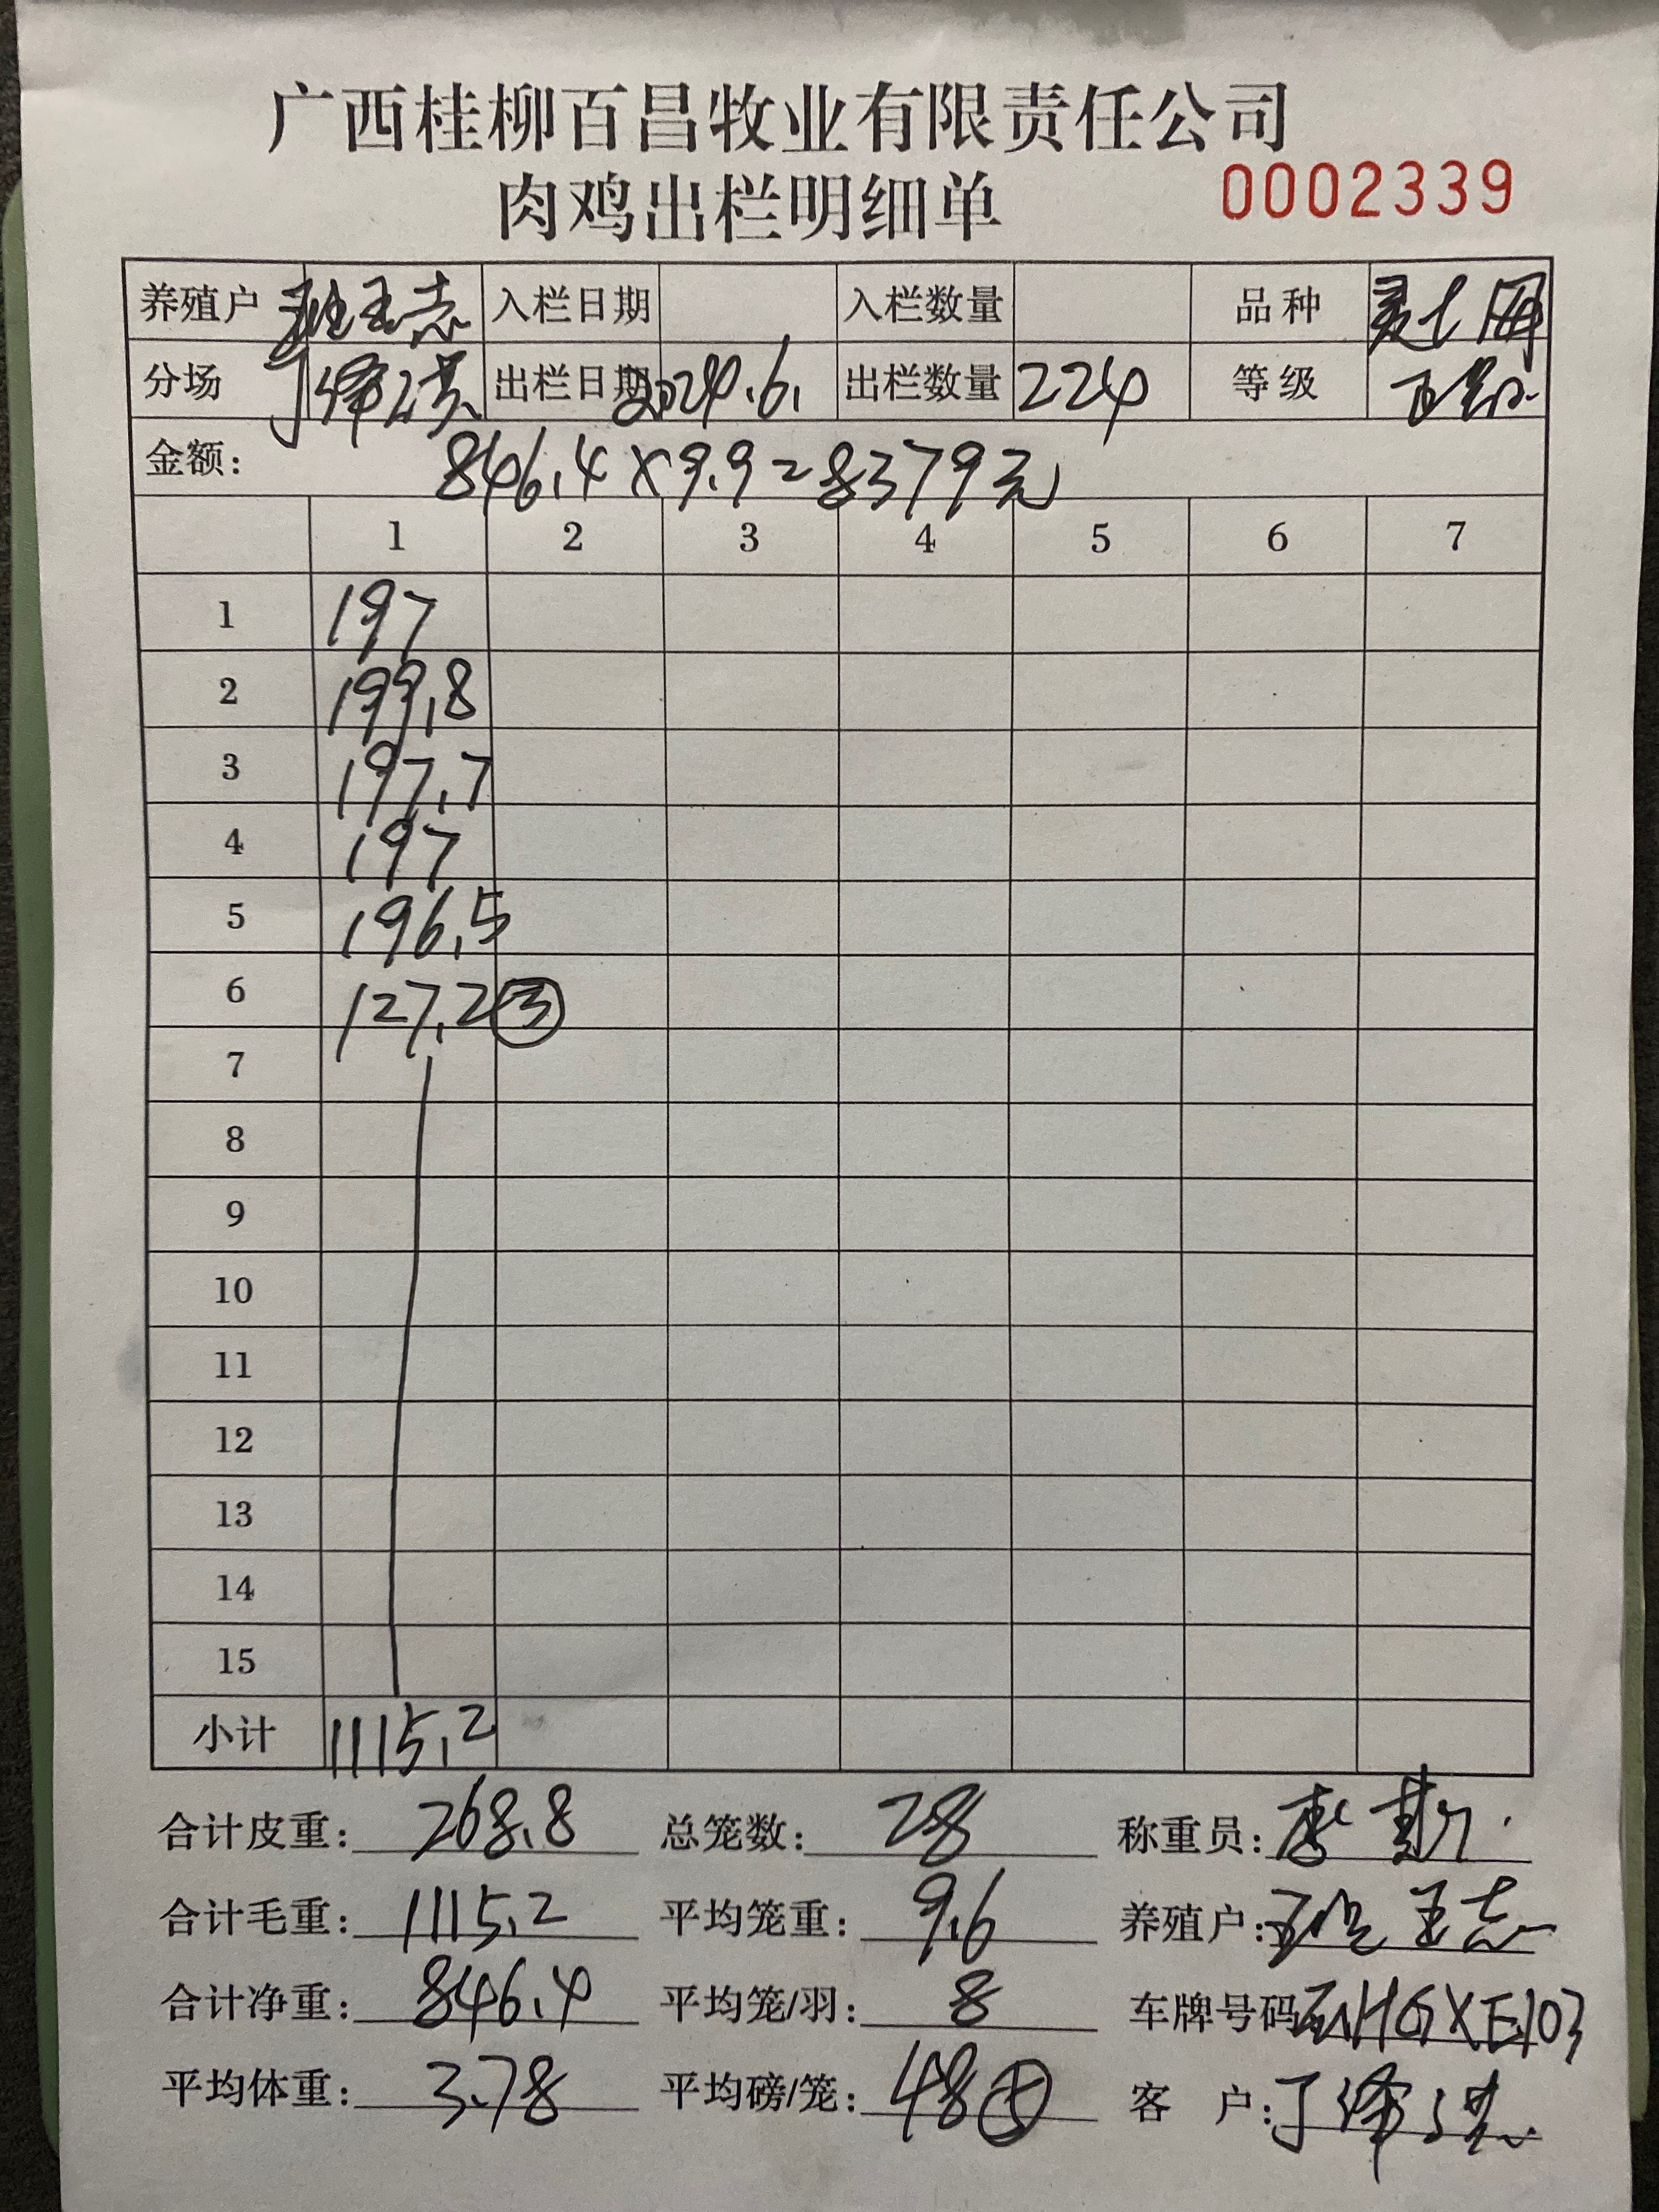 广西桂柳百昌牧业有限责任公司
肉鸡出栏明细单 0002339
养殖户 班玉志 入栏日期 入栏数量 品种
分场 丁泽 出栏日期 2024.6. 出栏数量 224 等级
金额: 846.4×9.9=8379元
1 2 3 4 5 6 7
1 197
2 199.8
3 197.7
4 197
5 196.5
6 127.2 ③
7
8
9
10
11
12
13
14
15
小计 1115.2
合计皮重: 268.8 总笼数: 28 称重员:
合计毛重: 1115.2 平均笼重: 9.6 养殖户: 班玉志
合计净重: 846.4 平均笼/羽: 8 车牌号码 HGXE103
平均体重: 3.78 平均磅/笼: 48⑤ 客 户: 丁泽